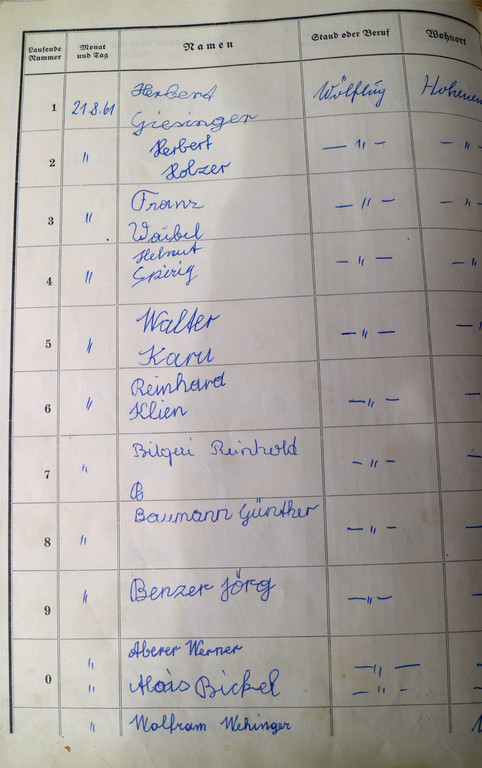 Laufende Nummer Monat und Tag Namen Stand oder Beruf Wohnort
1 21.8.61 Herbert Giesinger Wölfling
2 " Herbert Holzer — " —
3 " Franz Waibel — " —
4 " Helmut Spirig — " —
5 " Walter — " —
6 " Reinhard Klien — " —
7 " Bilgeri Reinhold — " —
8 " Baumann Günther — " —
9 " Benzer Jörg — " —
0 " Aberer Werner — " —
" Alois Bickel — " —
" Wolfram Wehinger